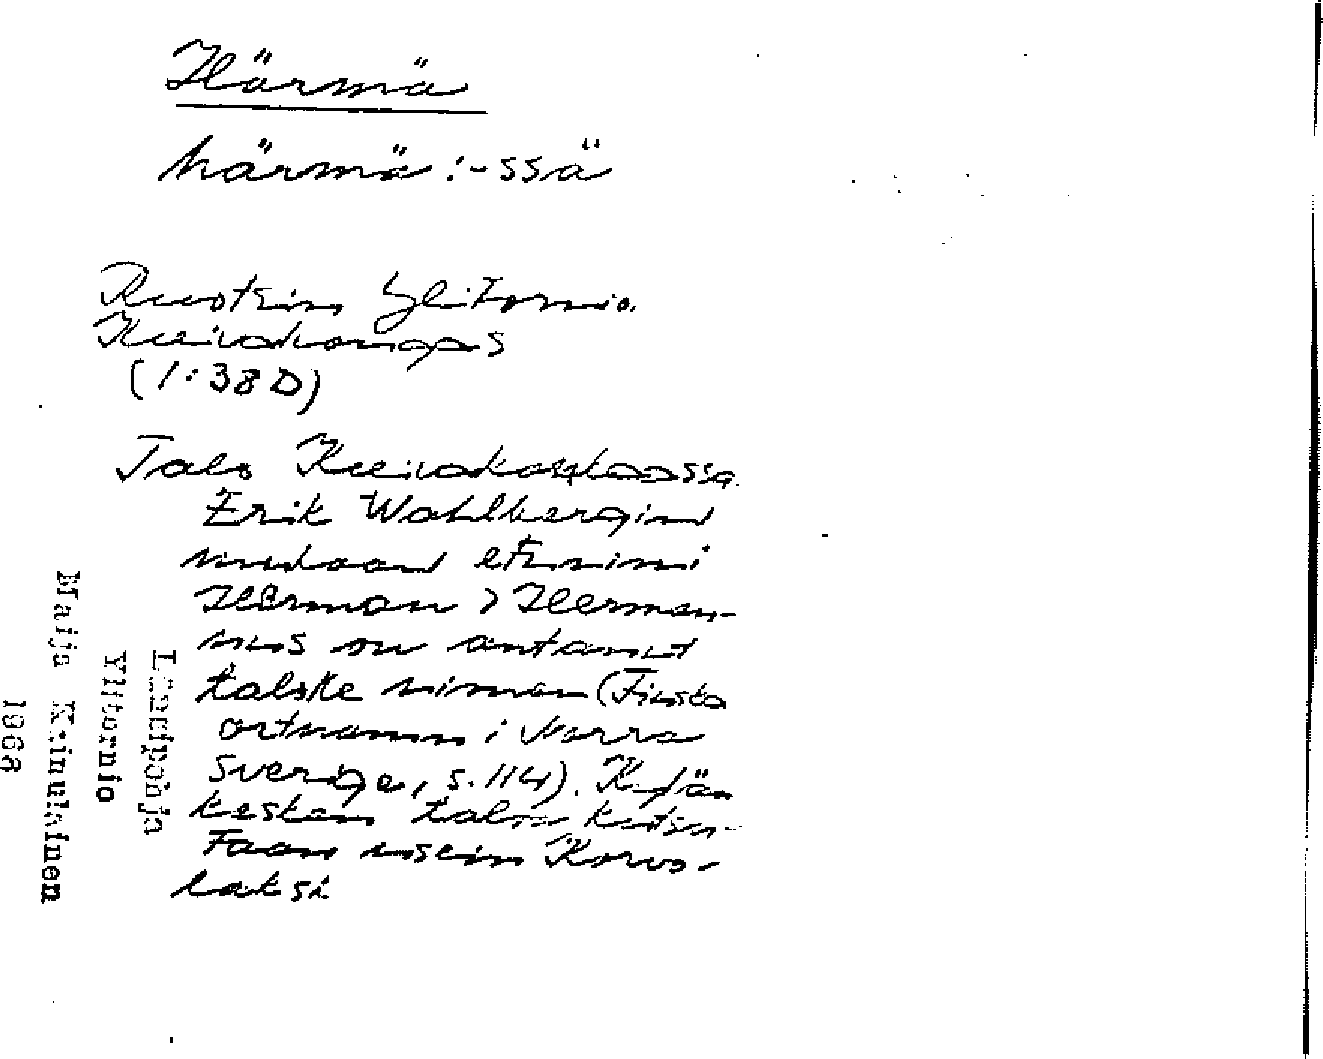 Härmä
härmä:-ssä
Ruotsin Ylitornio
Kuivakangas
(1:38D)
Talo Kuivakankaassa.
Erik Wahlbergin
mukaan etunimi
Herman > Herman-
nus on antanut
talolle nimen (Finska
ortnamn i Norra
Sverige, s. 114). Kylän
kesken taloa kutsu-
taan usein Korvo-
laksi
Länsipohja
Ylitornio
Maija Keinulainen
1968